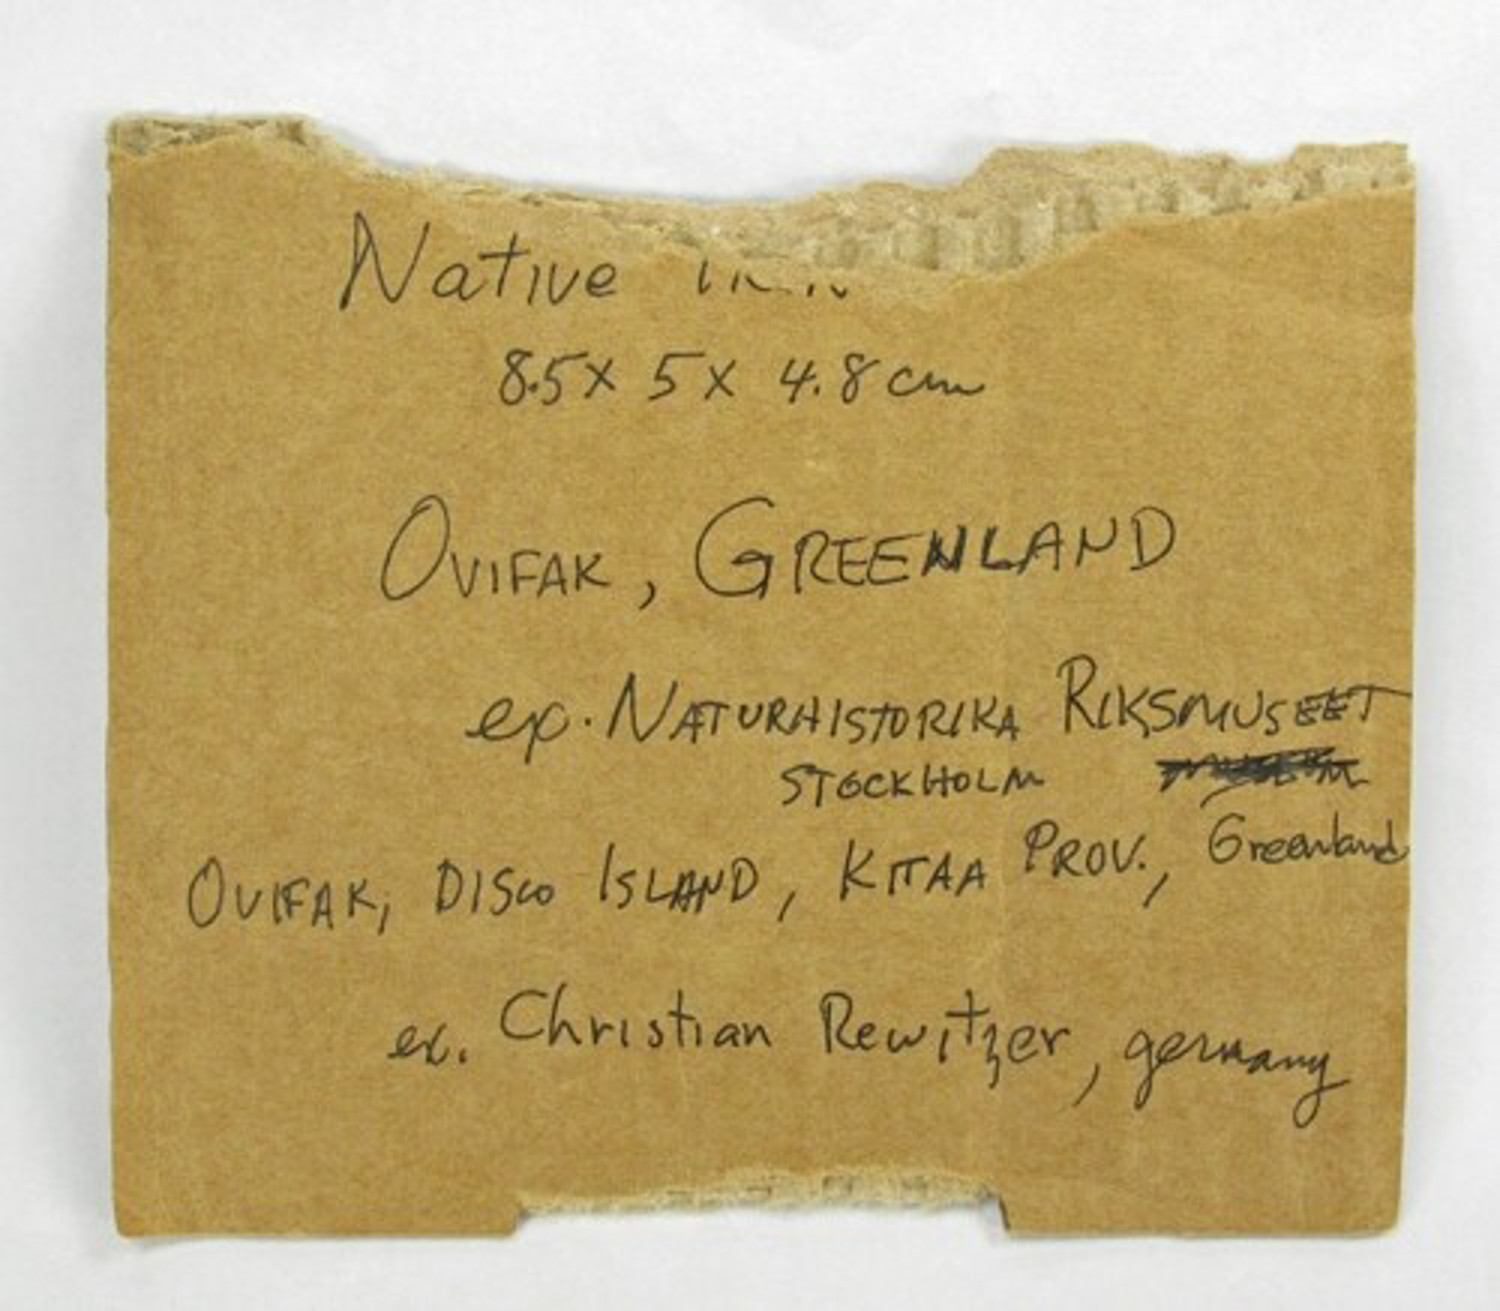 Native
8.5 x 5 x 4.8 cm
OVIFAK, GREENLAND
ex. NATURHISTORIKA RIKSMUSEET
STOCKHOLM
OVIFAK, DISCO ISLAND, KITAA PROV., Greenland
ex. Christian Rewitzer, germany